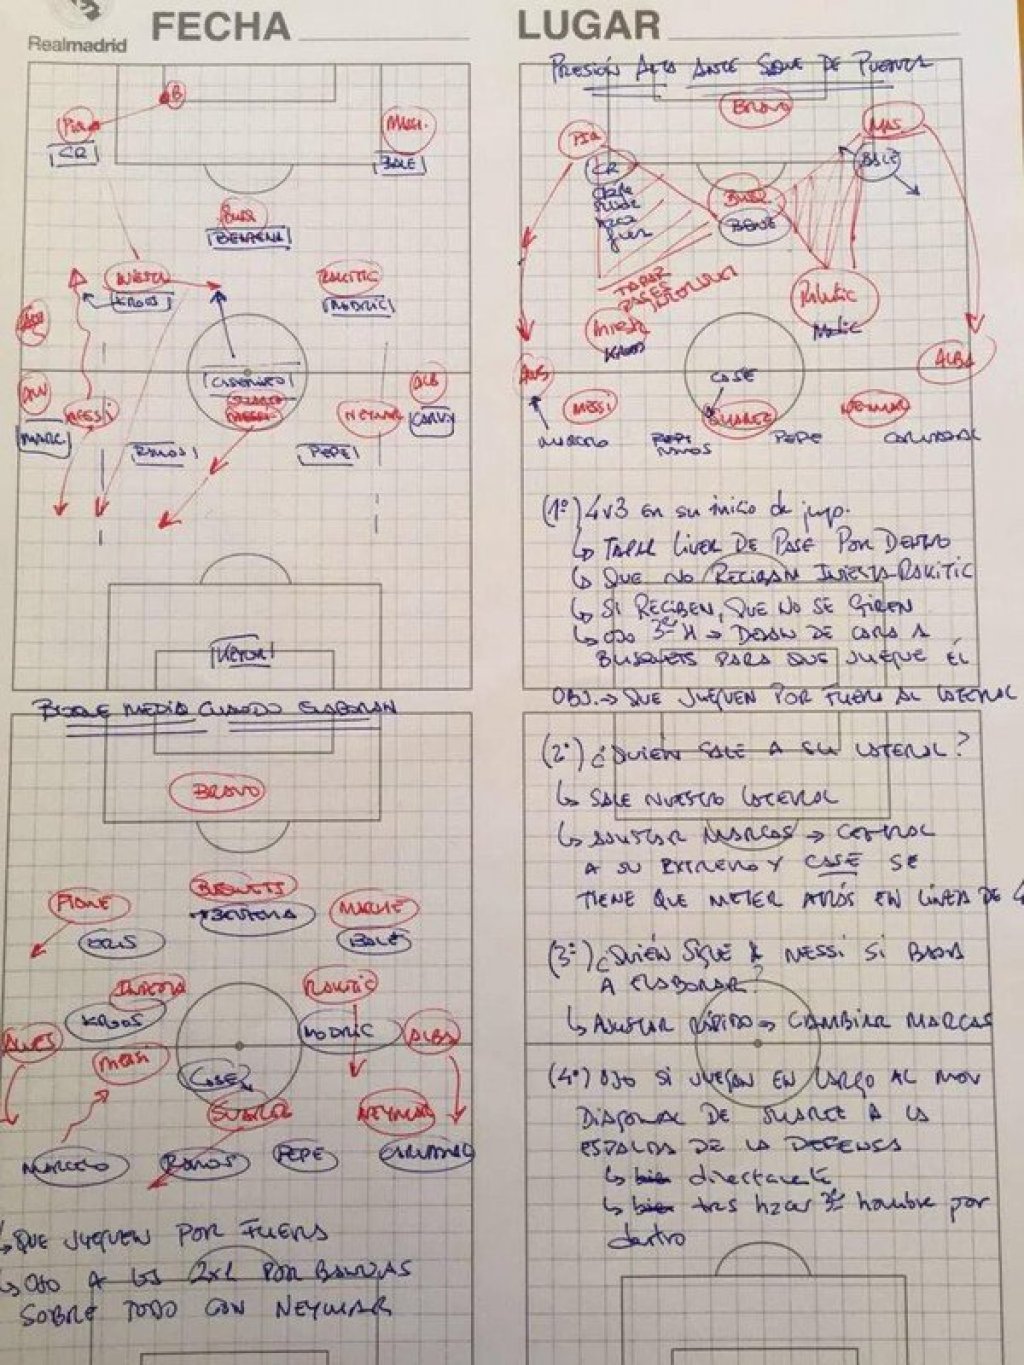 Realmadrid
FECHA
LUGAR
B
CR
BALE
BENZEMA
INIESTA
KROOS
RAKITIC
MODRIC
CASEMIRO
MESSI
NEYMAR
ALB
MARC
CARVJ
RAMOS
PEPE
KEYLOR
PRESIÓN ALTA ANTE SAQUE DE PUERTA
BRAVO
PIQ
MAS
CR
BALE
BUSR
BENZ
TAPAR
PASES
INTERIORES
INIESTA
KROOS
Rakitic
Modric
ALVES
ALBA
CASE
MESSI
SUAREZ
NEYMAR
MARCELO
RAMOS
PEPE
CARVAJAL
(1º) 4v3 en su inicio de juego.
↳ TAPAR LINEA DE PASE POR DENTRO
↳ QUE NO RECIBAN INIESTA-RAKITIC
↳ SI RECIBEN, QUE NO SE GIREN
↳ OJO 3er H → DEJAN DE CARA A
BUSQUETS PARA QUE JUEGUE ÉL
OBJ. → QUE JUEGUEN POR FUERA AL LATERAL
(2º) ¿QUIÉN SALE A SU LATERAL?
↳ SALE NUESTRO LATERAL
↳ AJUSTAR MARCAS → CENTRAL
A SU EXTREMO Y CASE SE
TIENE QUE METER ATRÁS EN LÍNEA DE 4
(3º) ¿QUIÉN SIGUE A MESSI SI BAJA
A ELABORAR?
↳ AJUSTAR RÁPIDO → CAMBIAR MARCAS
(4º) OJO SI JUEGAN EN LARGO AL MOV
DIAGONAL DE SUAREZ A LA
ESPALDA DE LA DEFENSA
↳ bien directamente
↳ bien tras hzar 3er hombre por
dentro
BLOQUE MEDIO CUANDO ELABORAN
BRAVO
PIQUE
BUSQUETS
MASCHE
CRIS
BENZEMA
BALE
INIESTA
RAKITIC
KROOS
MODRIC
ALVES
ALBA
MESSI
CASE
SUAREZ
NEYMAR
MARCELO
RAMOS
PEPE
CARVAJAL
↳ QUE JUEGUEN POR FUERA
↳ OJO A LOS 2x1 POR BANDAS
SOBRE TODO CON NEYMAR